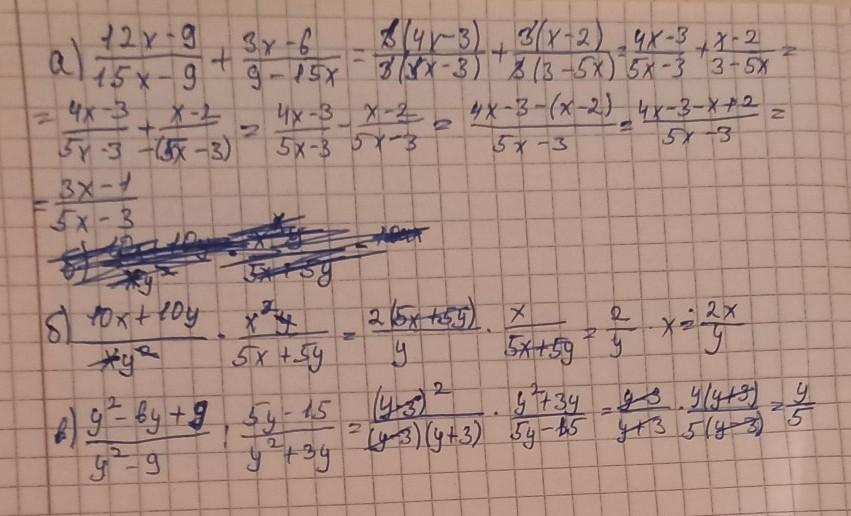 а) (12x-9)/(15x-9) + (3x-6)/(9-15x) = 3(4x-3)/3(5x-3) + 3(x-2)/3(3-5x) = (4x-3)/(5x-3) + (x-2)/(3-5x) =
= (4x-3)/(5x-3) + (x-2)/-(5x-3) = (4x-3)/(5x-3) - (x-2)/(5x-3) = (4x-3-(x-2))/(5x-3) = (4x-3-x+2)/(5x-3) =
= (3x-1)/(5x-3)
б) (10x+10y)/(xy²) · (x²y)/(5x+5y) = 2(5x+5y)/y · x/(5x+5y) = 2/y · x = 2x/y
в) (y²-6y+9)/(y²-9) : (5y-15)/(y²+3y) = (y-3)²/(y-3)(y+3) · (y²+3y)/(5y-15) = (y-3)/(y+3) · y(y+3)/5(y-3) = y/5